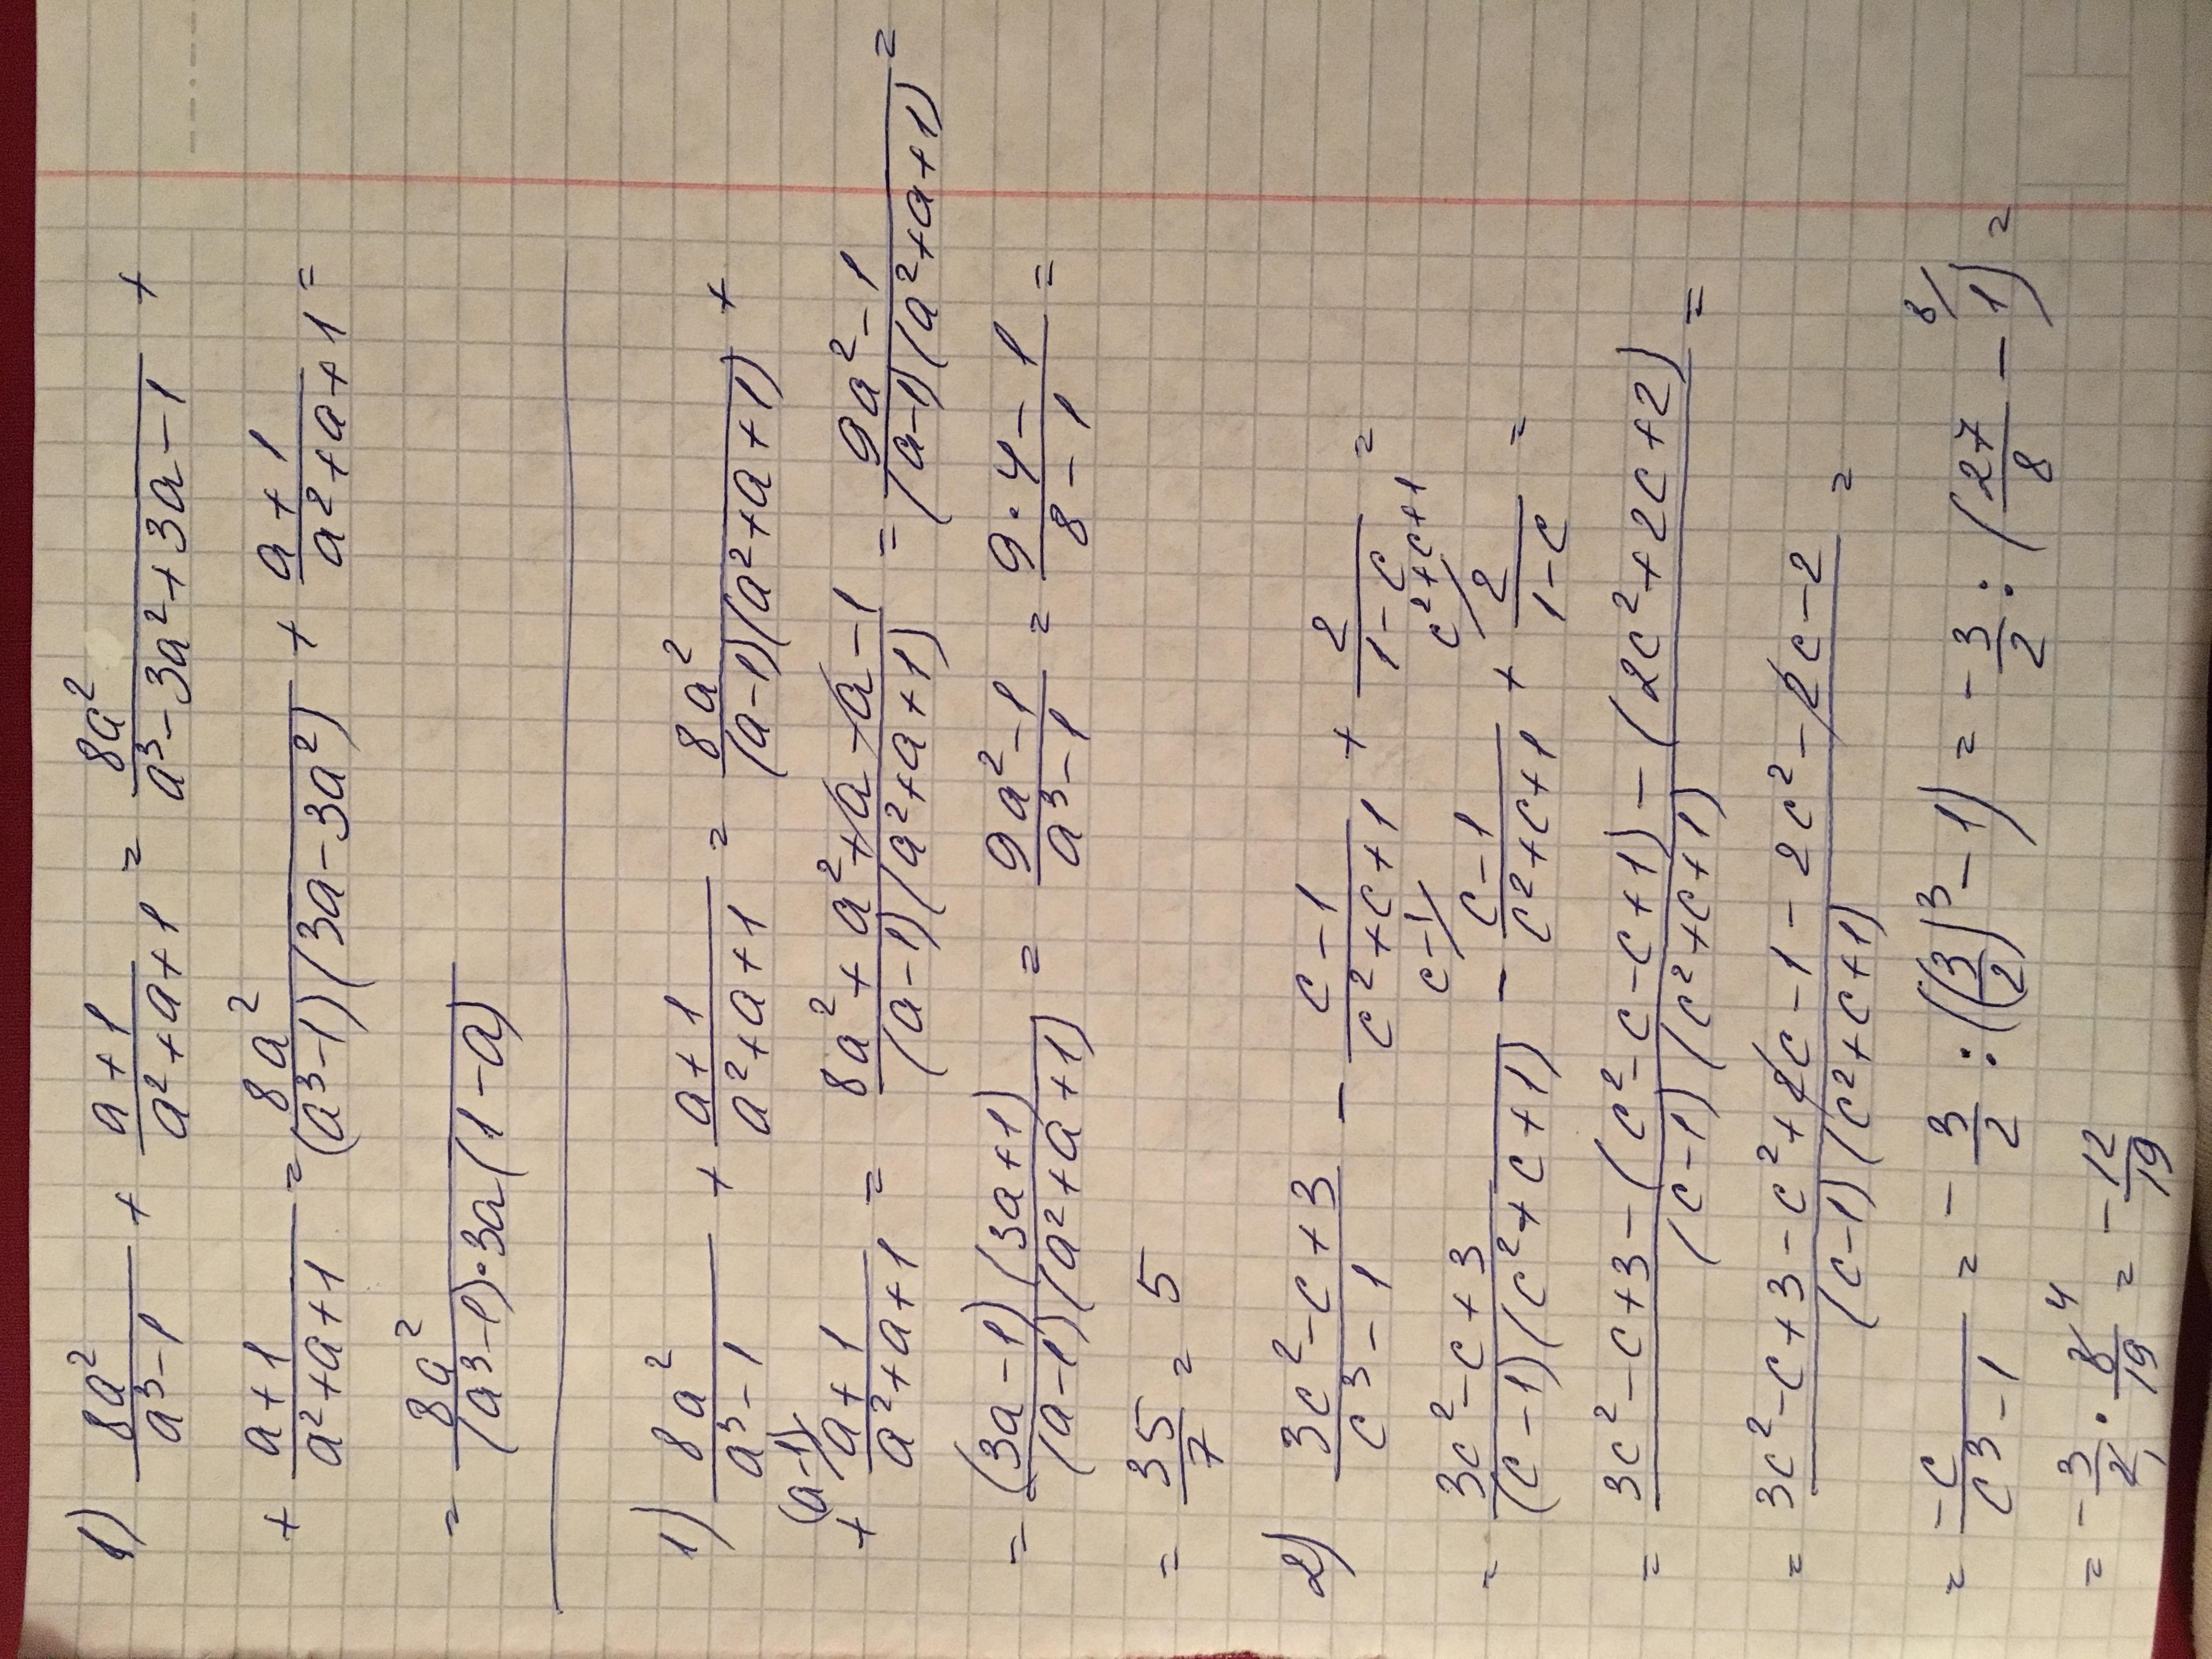 1) 8a²/(a³-1) + (a+1)/(a²+a+1) = 8a²/(a³-3a²+3a-1) +
+ (a+1)/(a²+a+1) = 8a²/((a³-1)(3a-3a²)) + (a+1)/(a²+a+1) =
= 8a²/((a³-1)·3a(1-a))
1) 8a²/(a³-1) + (a+1)/(a²+a+1) = 8a²/((a-1)(a²+a+1)) +
+ (a-1)/ (a+1)/(a²+a+1) = (8a²+a²+a-a-1)/((a-1)(a²+a+1)) = (9a²-1)/((a-1)(a²+a+1)) =
= ((3a-1)(3a+1))/((a-1)(a²+a+1)) = (9a²-1)/(a³-1) = (9·4-1)/(8-1) =
= 35/7 = 5
2) (3c²-c+3)/(c³-1) - (c-1)/(c²+c+1) + 2/(1-c) =
= (3c²-c+3)/((c-1)(c²+c+1)) - c-1/ (c-1)/(c²+c+1) + c²+c+1/ 2/(1-c) =
= (3c²-c+3-(c²-c-c+1)-(2c²+2c+2))/((c-1)(c²+c+1)) =
= (3c²-c+3-c²+2c-1-2c²-2c-2)/((c-1)(c²+c+1)) =
= -c/(c³-1) = -3/2 : ((3/2)³-1) = -3/2 : (27/8 - 8/ 1) =
= -3/2 · 8/19 4 = -12/19